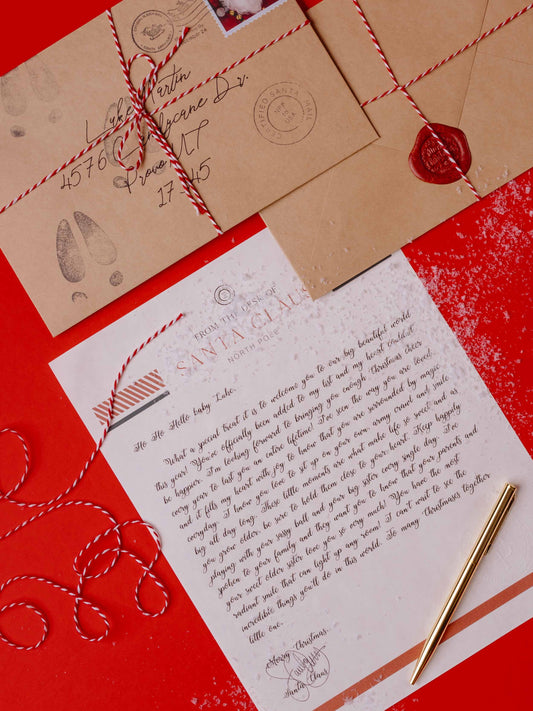 Luke Martin
4576 Candycane Dr.
Provo
17-45
CERTIFIED SANTA MAIL
MADE IN USA
FROM THE DESK OF
SANTA CLAUS
NORTH POLE
Ho Ho Hello baby Luke,
What a special treat it is to welcome you to our big beautiful world
this year! You've officially been added to my list and my heart couldn't
be happier. I'm looking forward to bringing you enough Christmas cheer
every year to last you an entire lifetime! I've seen the way you are loved
and it fills my heart with joy to know that you are surrounded by magic
everyday. I know you love to sit up on your own, army crawl and smile
big all day long. These little moments are what make life so sweet and as
you grow older, be sure to hold them close to your heart. Keep happily
playing with your sassy ball and your big sister every single day. I've
spoken to your family and they want you to know that your parents and
your sweet older sister love you so very much! You have the most
radiant smile that can light up any room. I can't wait to see the
incredible things you'll do in this world. So many Christmases together
little one.
Merry Christmas,
Santa Claus